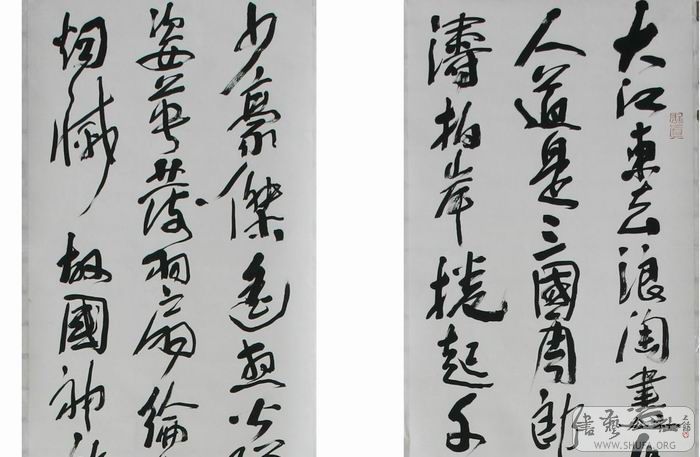 大江東去浪淘盡
人道是三國周郎
濤拍岸捲起千
少豪傑遙想公
姿英發羽扇綸
烟滅 故國神
書藝公社
WWW.SHUFA.ORG